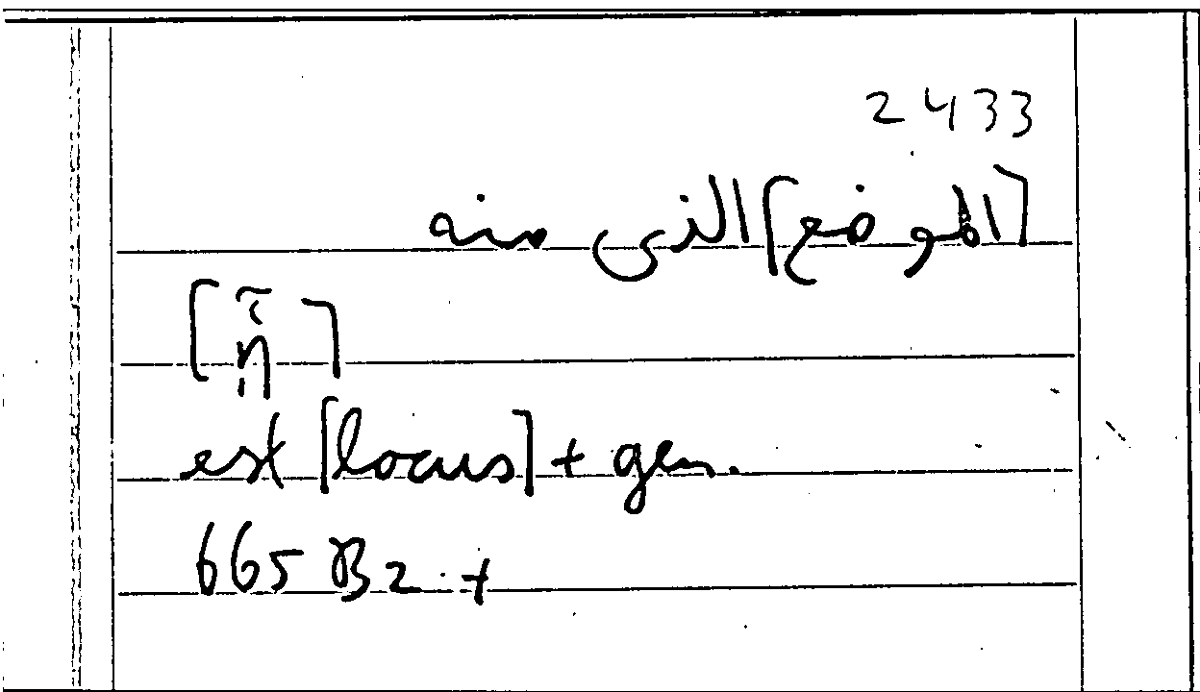 2433
[الموضع] الذى منه
[ᾗ]
est [locus] + gen.
665 B2 +